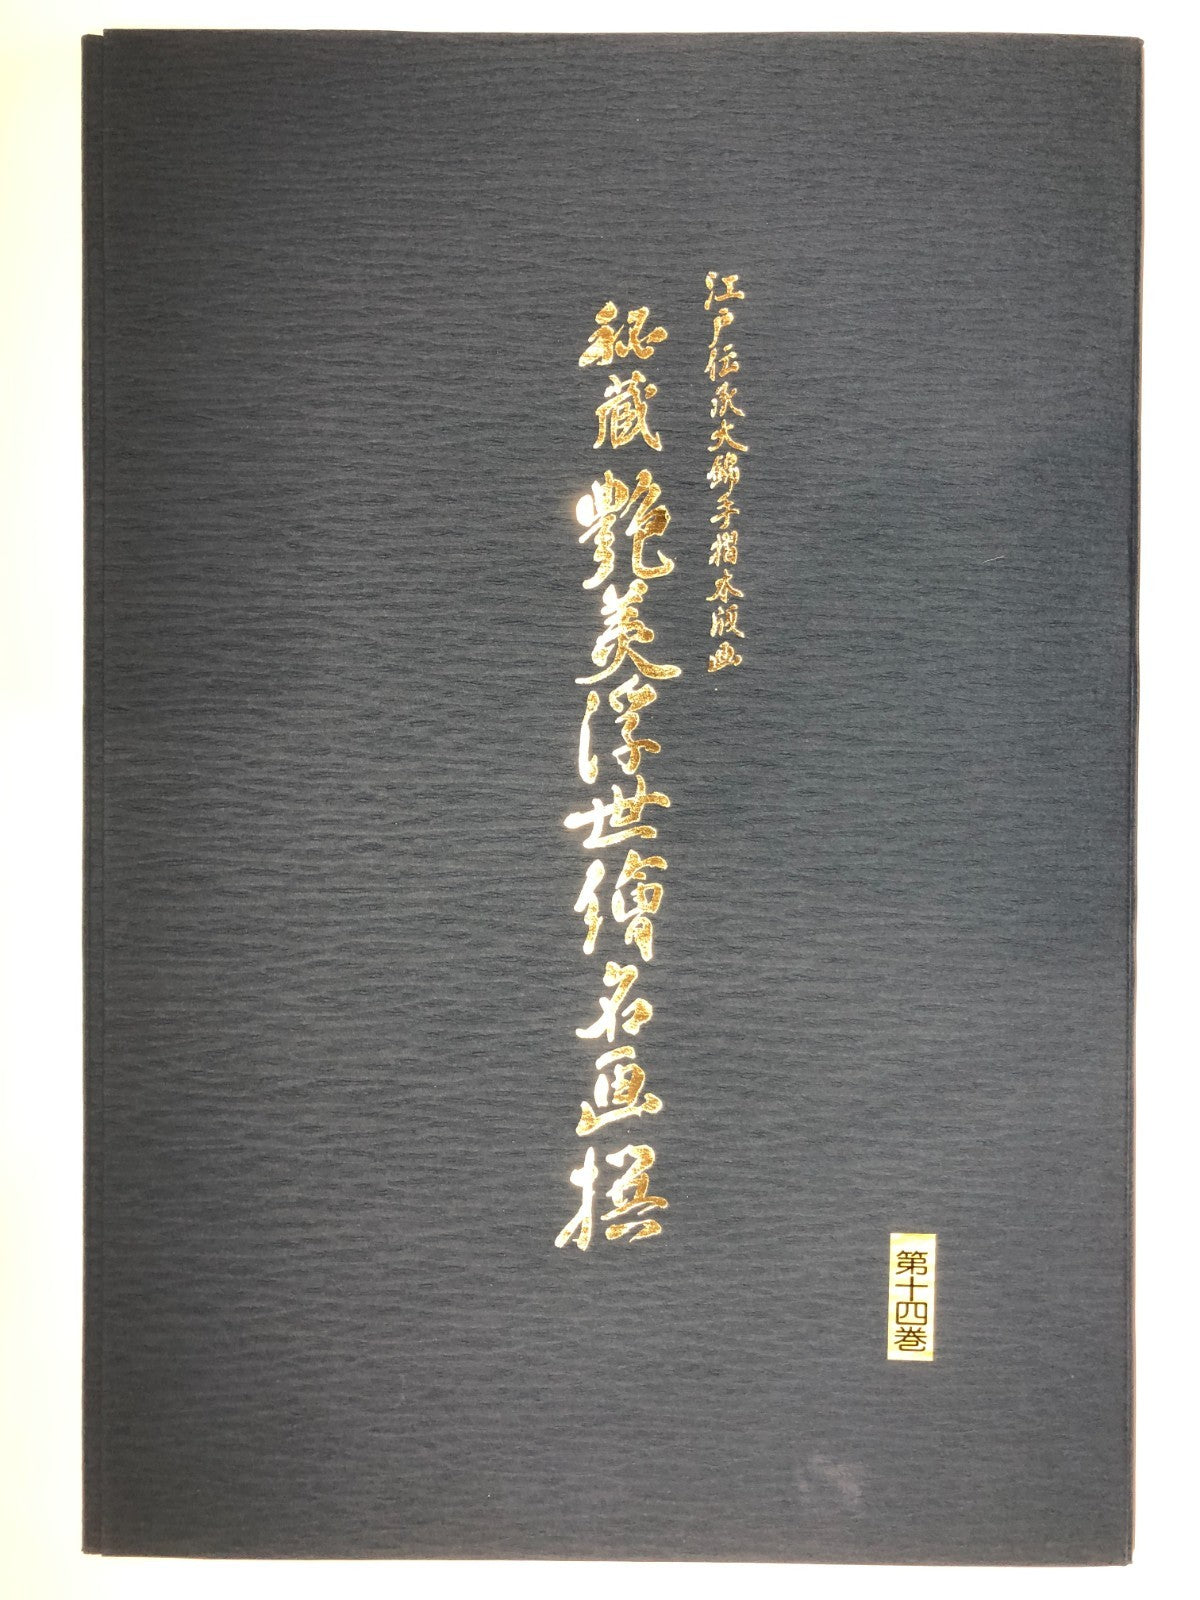 江戸伝承大錦手摺木版画
秘蔵 艶美浮世繪名画撰
第十四巻